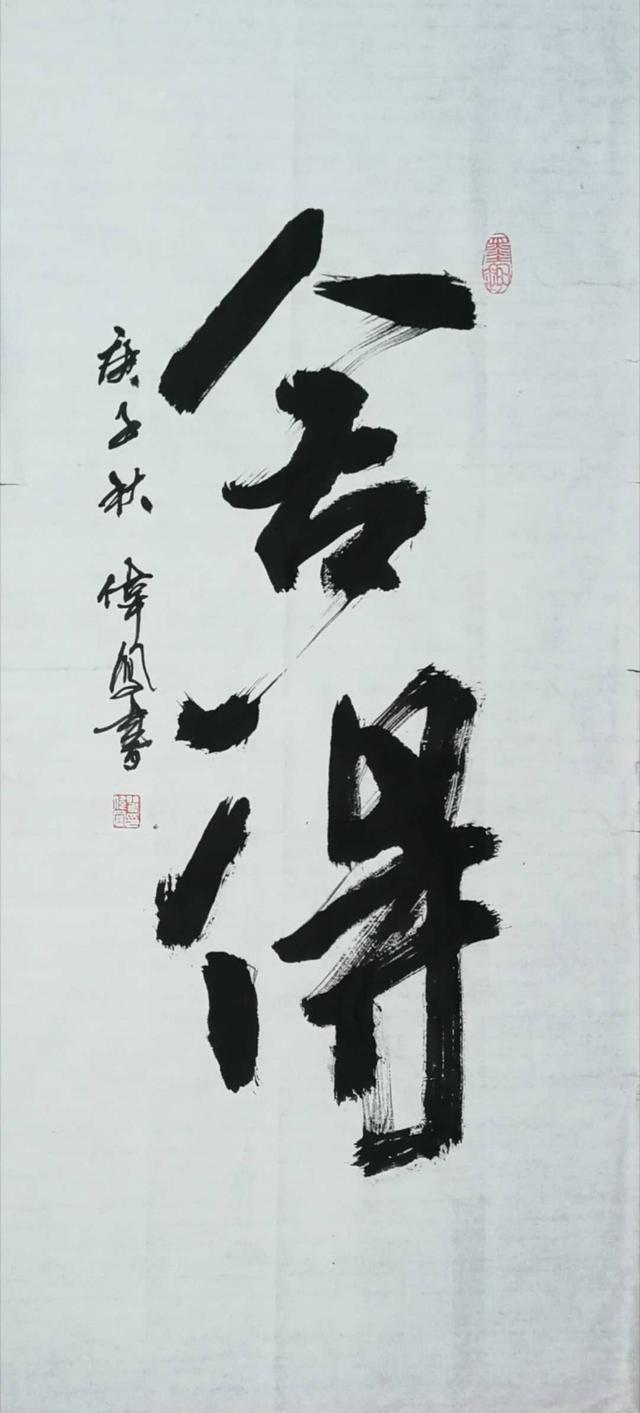 舍得
庚子秋 偉鳳書